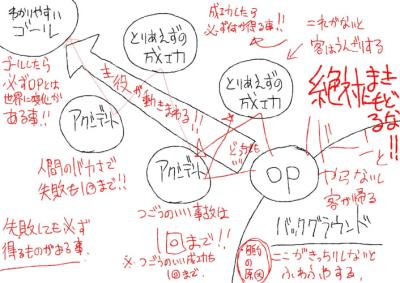 わかりやすい
ゴール
ゴールしたら
必ずOPとは
世界に変化が
ある事!!
とりあえずの
ガメエカ
成功したら
必ず何か得る事!!
これがないと
客はうんざりする
とりあえずの
ガメエカ
主役が動きまわる!!
アクシデント
アクシデント
どっちも
絶対にまき
もどるな!!
OP
やらないと
客が帰る
人間のバカさで
失敗も1回まで!!
つごうのいい事故は
1回まで!!
※つごうのいい成功も
1回まで。
失敗しても必ず
得るものがある事。
バックグラウンド
ここがきっちりしないと
ふわふわする。